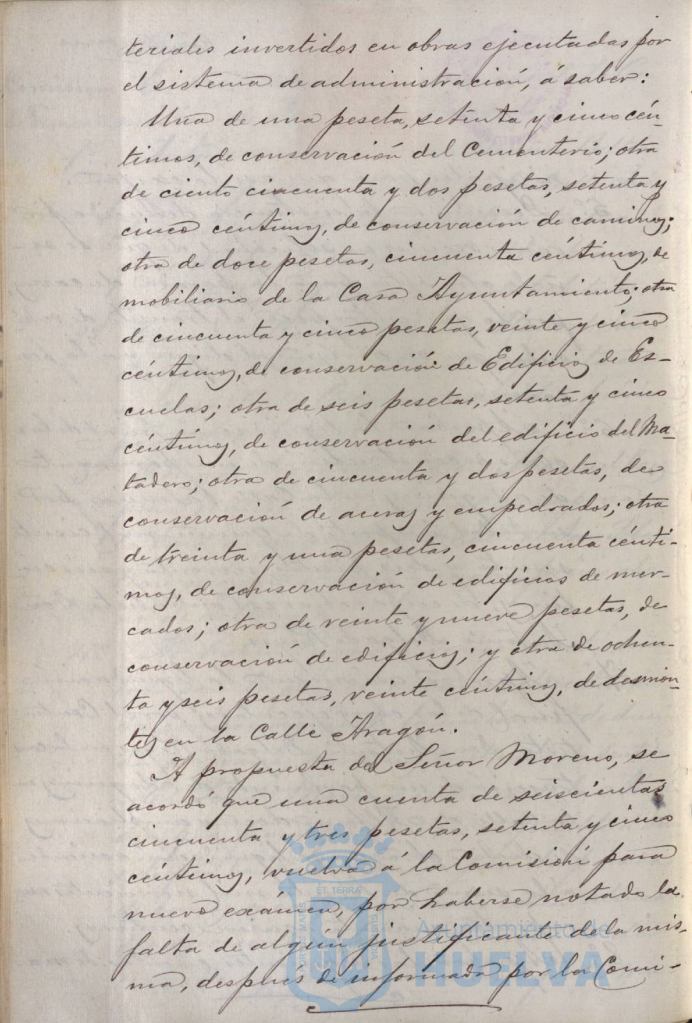 teriales invertidos en obras ejecutadas por
el sistema de administración, á saber:
Una de una peseta, setenta y cinco cén-
timos, de conservación del Cementerio; otra
de ciento cincuenta y dos pesetas, setenta y
cinco céntimos, de conservación de caminos;
otra de doce pesetas, cincuenta céntimos, de
mobiliario de la Casa Ayuntamiento; otra
de cincuenta y cinco pesetas, veinte y cinco
céntimos, de conservación de Edificios de Es-
cuelas; otra de seis pesetas, setenta y cinco
céntimos, de conservación del edificio del Ma-
tadero; otra de cincuenta y dos pesetas, de
conservación de aceras y empedrados; otra
de treinta y una pesetas, cincuenta cénti-
mos, de conservación de edificios de mer-
cados; otra de veinte y nueve pesetas, de
conservación de edificios; y otra de ochen-
ta y seis pesetas, veinte céntimos, de desmon-
tes en la Calle Aragón.
A propuesta del Señor Moreno, se
acordó que una cuenta de seiscientas
cincuenta y tres pesetas, setenta y cinco
céntimos, vuelva á la Comisión para
nuevo exámen, por haberse notado la
falta de algún justificante de la mis-
ma, después de informada por la Comi-
ET TERRA
Ayuntamiento de
HUELVA